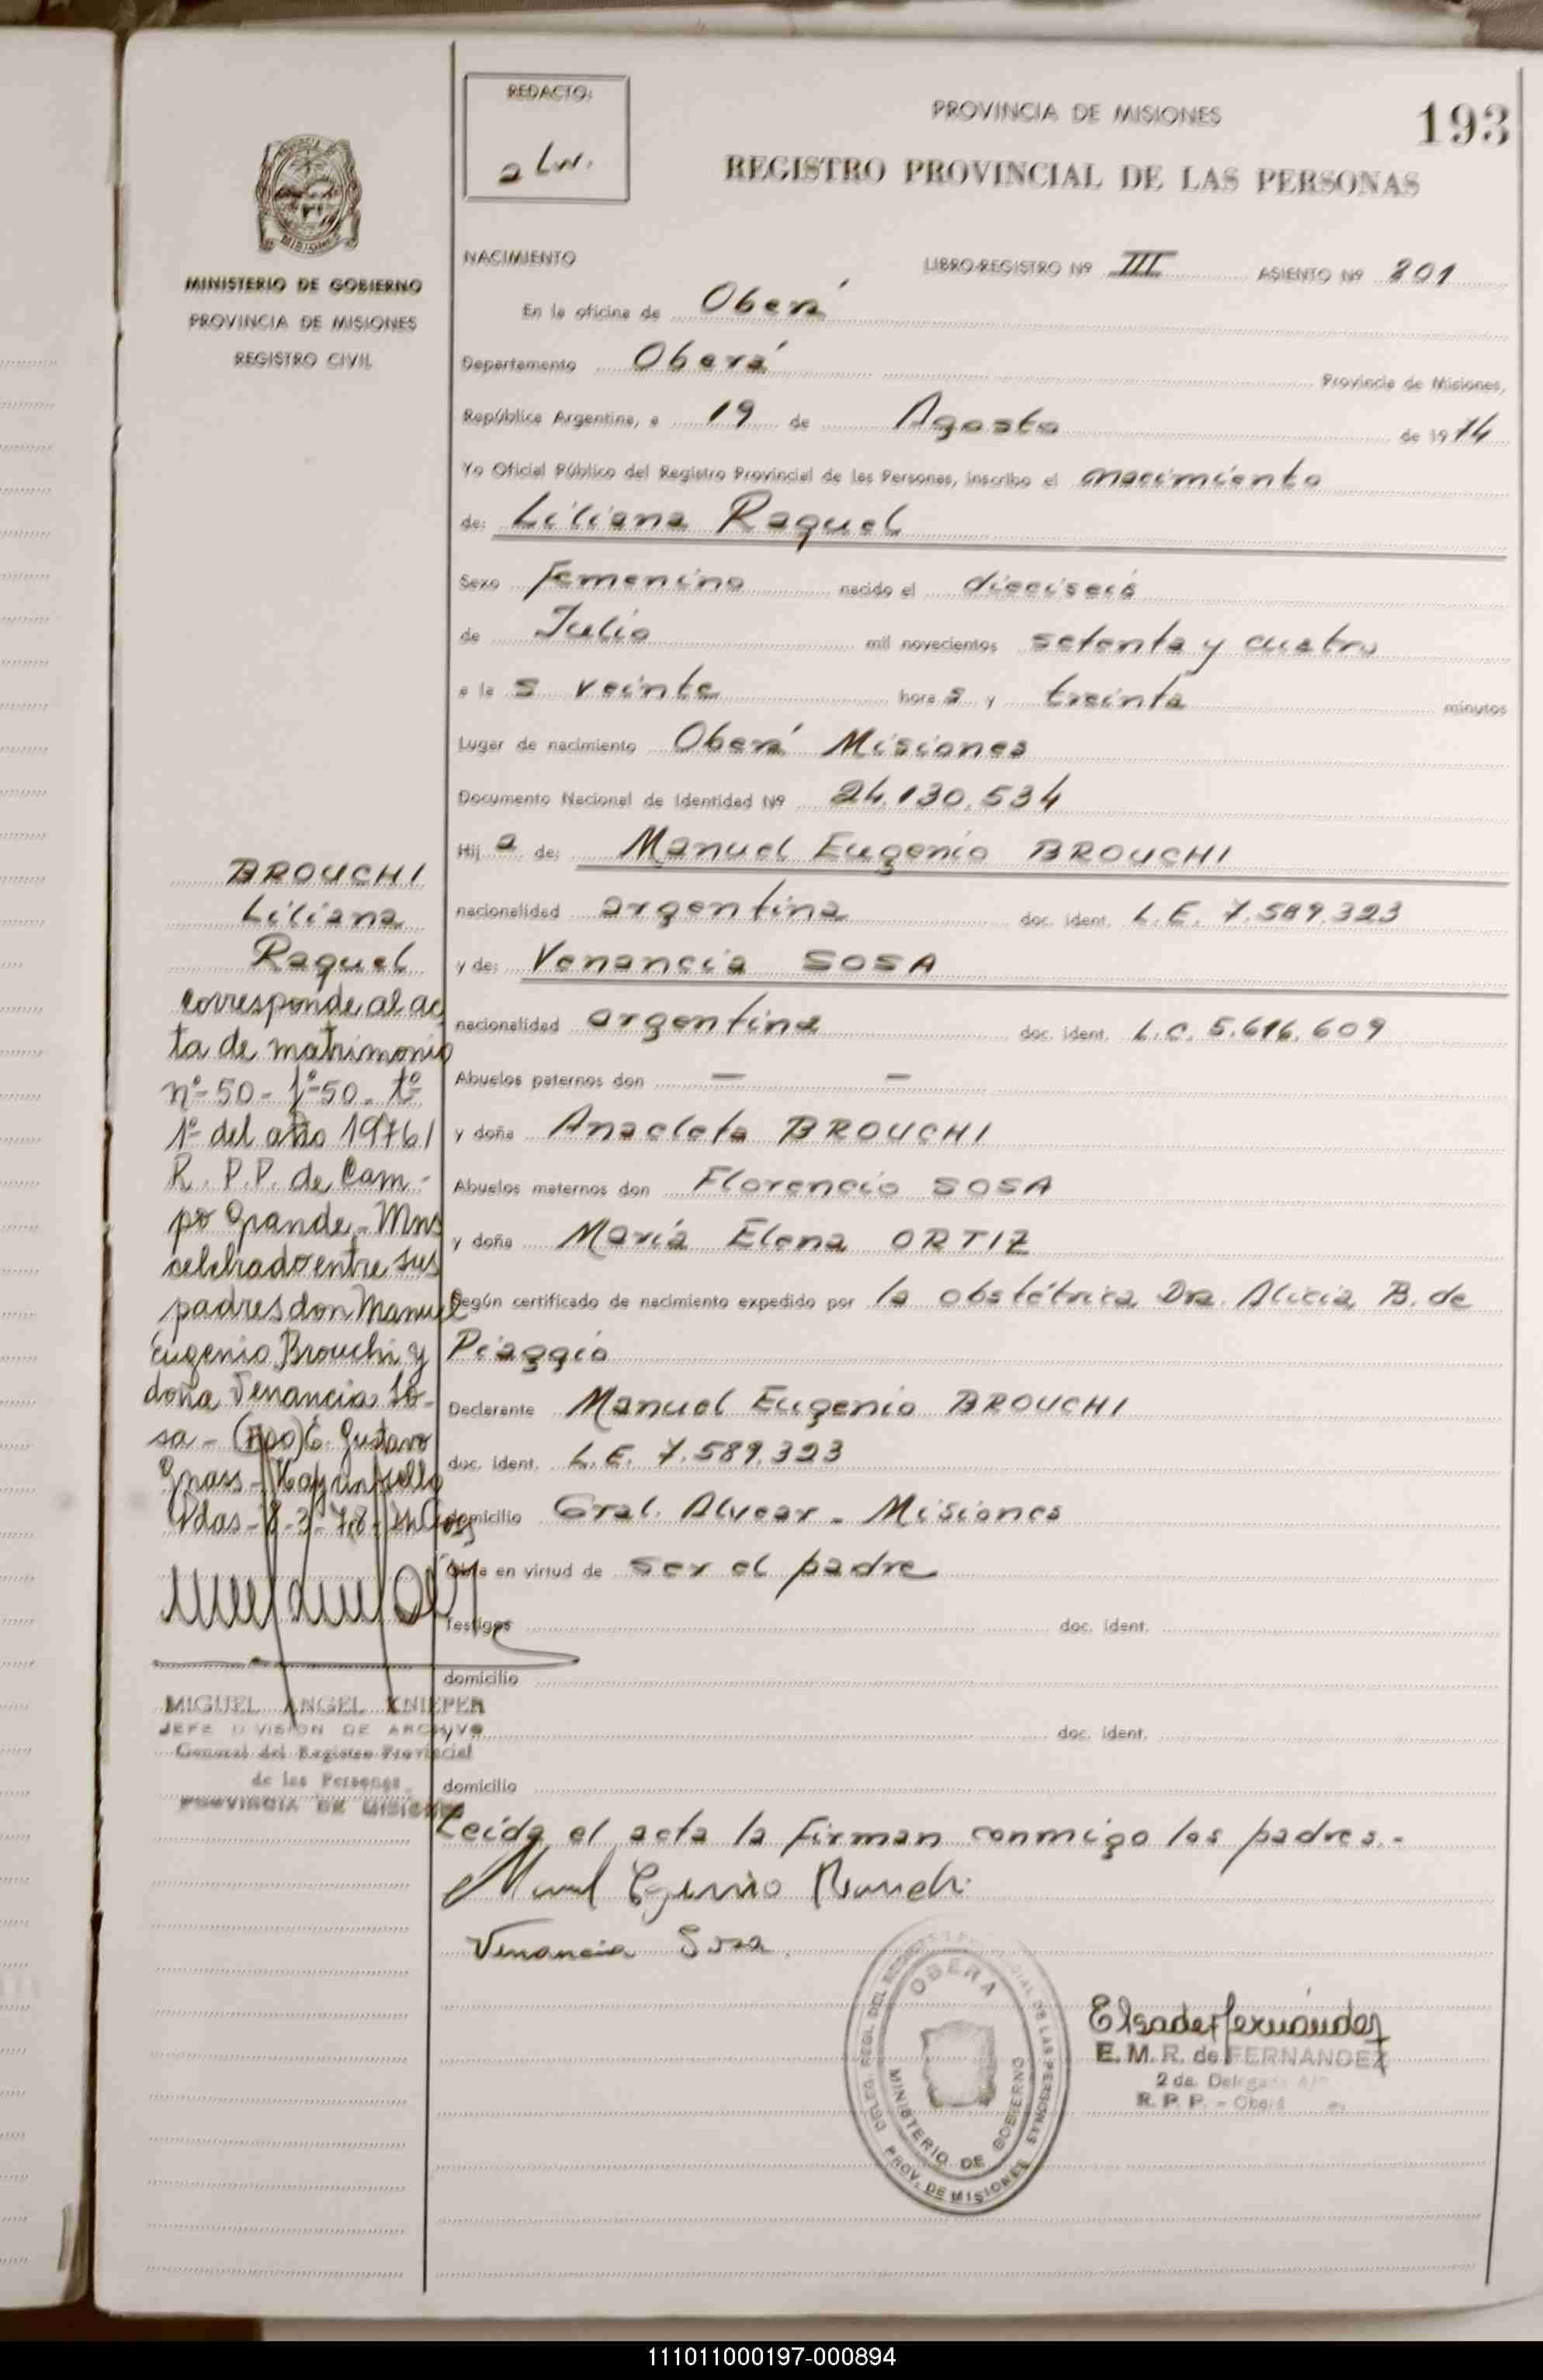 REDACTO:
PROVINCIA DE MISIONES
193
REGISTRO PROVINCIAL DE LAS PERSONAS
MINISTERIO DE GOBIERNO
PROVINCIA DE MISIONES
REGISTRO CIVIL
NACIMIENTO LIBRO-REGISTRO Nº III ASIENTO Nº 801
En la oficina de Oberá
Departamento Oberá Provincia de Misiones,
República Argentina, a 19 de Agosto de 1974
Yo Oficial Público del Registro Provincial de las Personas, inscribo el nacimiento
de: Liliana Raquel
Sexo femenino nacido el dieciseis
de Julio mil novecientos setenta y cuatro
a la s veinte hora s y treinta minutos
Lugar de nacimiento Oberá Misiones
Documento Nacional de Identidad Nº 24.130.534
Hij a de: Manuel Eugenio BROUCHI
nacionalidad argentina doc. ident. L.E. 7.589.323
y de: Venancia SOSA
nacionalidad argentina doc. ident. L.C. 5.616.609
Abuelos paternos don — —
y doña Anacleta BROUCHI
Abuelos maternos don Florencio SOSA
y doña María Elena ORTIZ
Según certificado de nacimiento expedido por la obstétrica Dra. Alicia B. de
Piaggio
Declarante Manuel Eugenio BROUCHI
doc. ident. L.E. 7.589.323
domicilio Gral. Alvear - Misiones
Obra en virtud de ser el padre
Testigos doc. ident.
domicilio
y doc. ident.
domicilio
Leida el acta la firman conmigo los padres.-
Manuel Eugenio Brouchi
Venancia Sosa
BROUCHI
Liliana
Raquel
corresponde al ac
ta de matrimonio
nº-50- fº-50- tº
1º del año 1976/
R. P.P. de Cam-
po Grande-Mns
celebrado entre sus
padres don Manuel
Eugenio Brouchi y
doña Venancia So-
sa - (Fdo) E. Gustavo
Gnass - Hay un sello
Pdas - 8-3-78-
MIGUEL ANGEL KNIEPER
JEFE DIVISION DE ARCHIVO
General del Registro Provincial
de las Personas
PROVINCIA DE MISIONES
OBERA
MINISTERIO DE GOBIERNO
PROV. DE MISIONES
Elsa de Fernández
E. M. R. de FERNANDEZ
2 da. Delegada
R. P. P. - Oberá
111011000197-000894